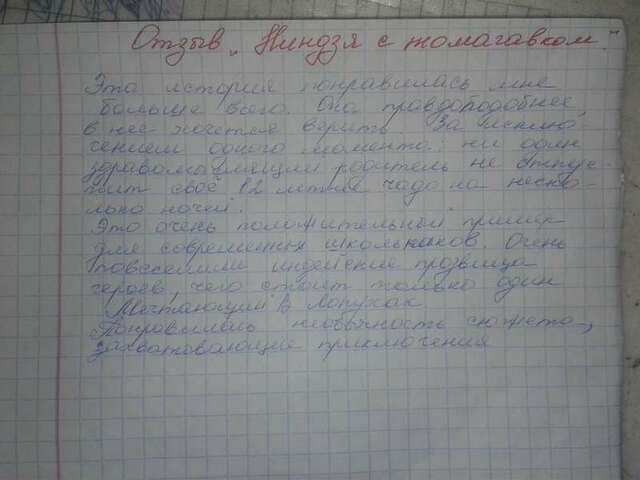 Отзыв „Ниндзя с томагавком"
Эта история понравилась мне
больше всего. Она правдоподобнее,
в нее хочется верить. За исклю-
чением одного момента: ни один
здравомыслящий родитель не отпус-
тит своё 12 летнее чадо на неско-
лько ночей.
Это очень положительный пример
для современных школьников. Очень
повеселили индейские прозвища
героев, чего стоит только один
Мечтающий в Лопухах.
Понравились необычность сюжета,
захватывающие приключения